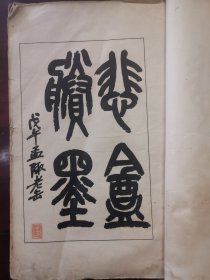 悲盦
賸墨
戊午孟陬老缶